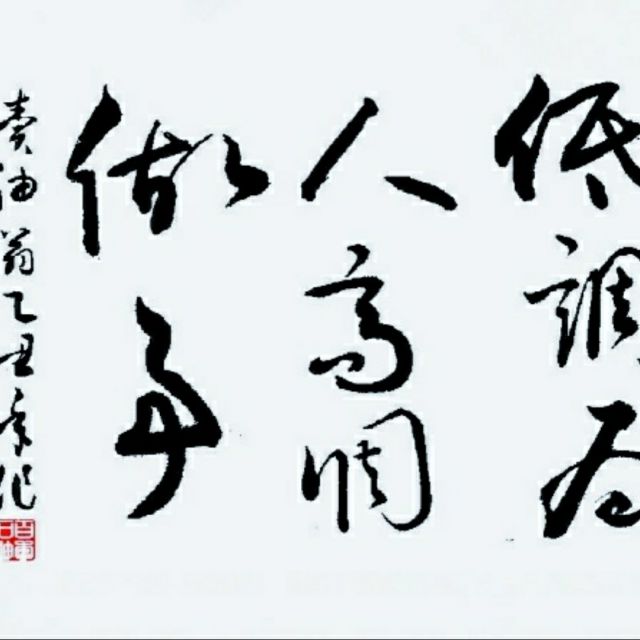 低調為
人高调
做事
卖油翁乙丑年作